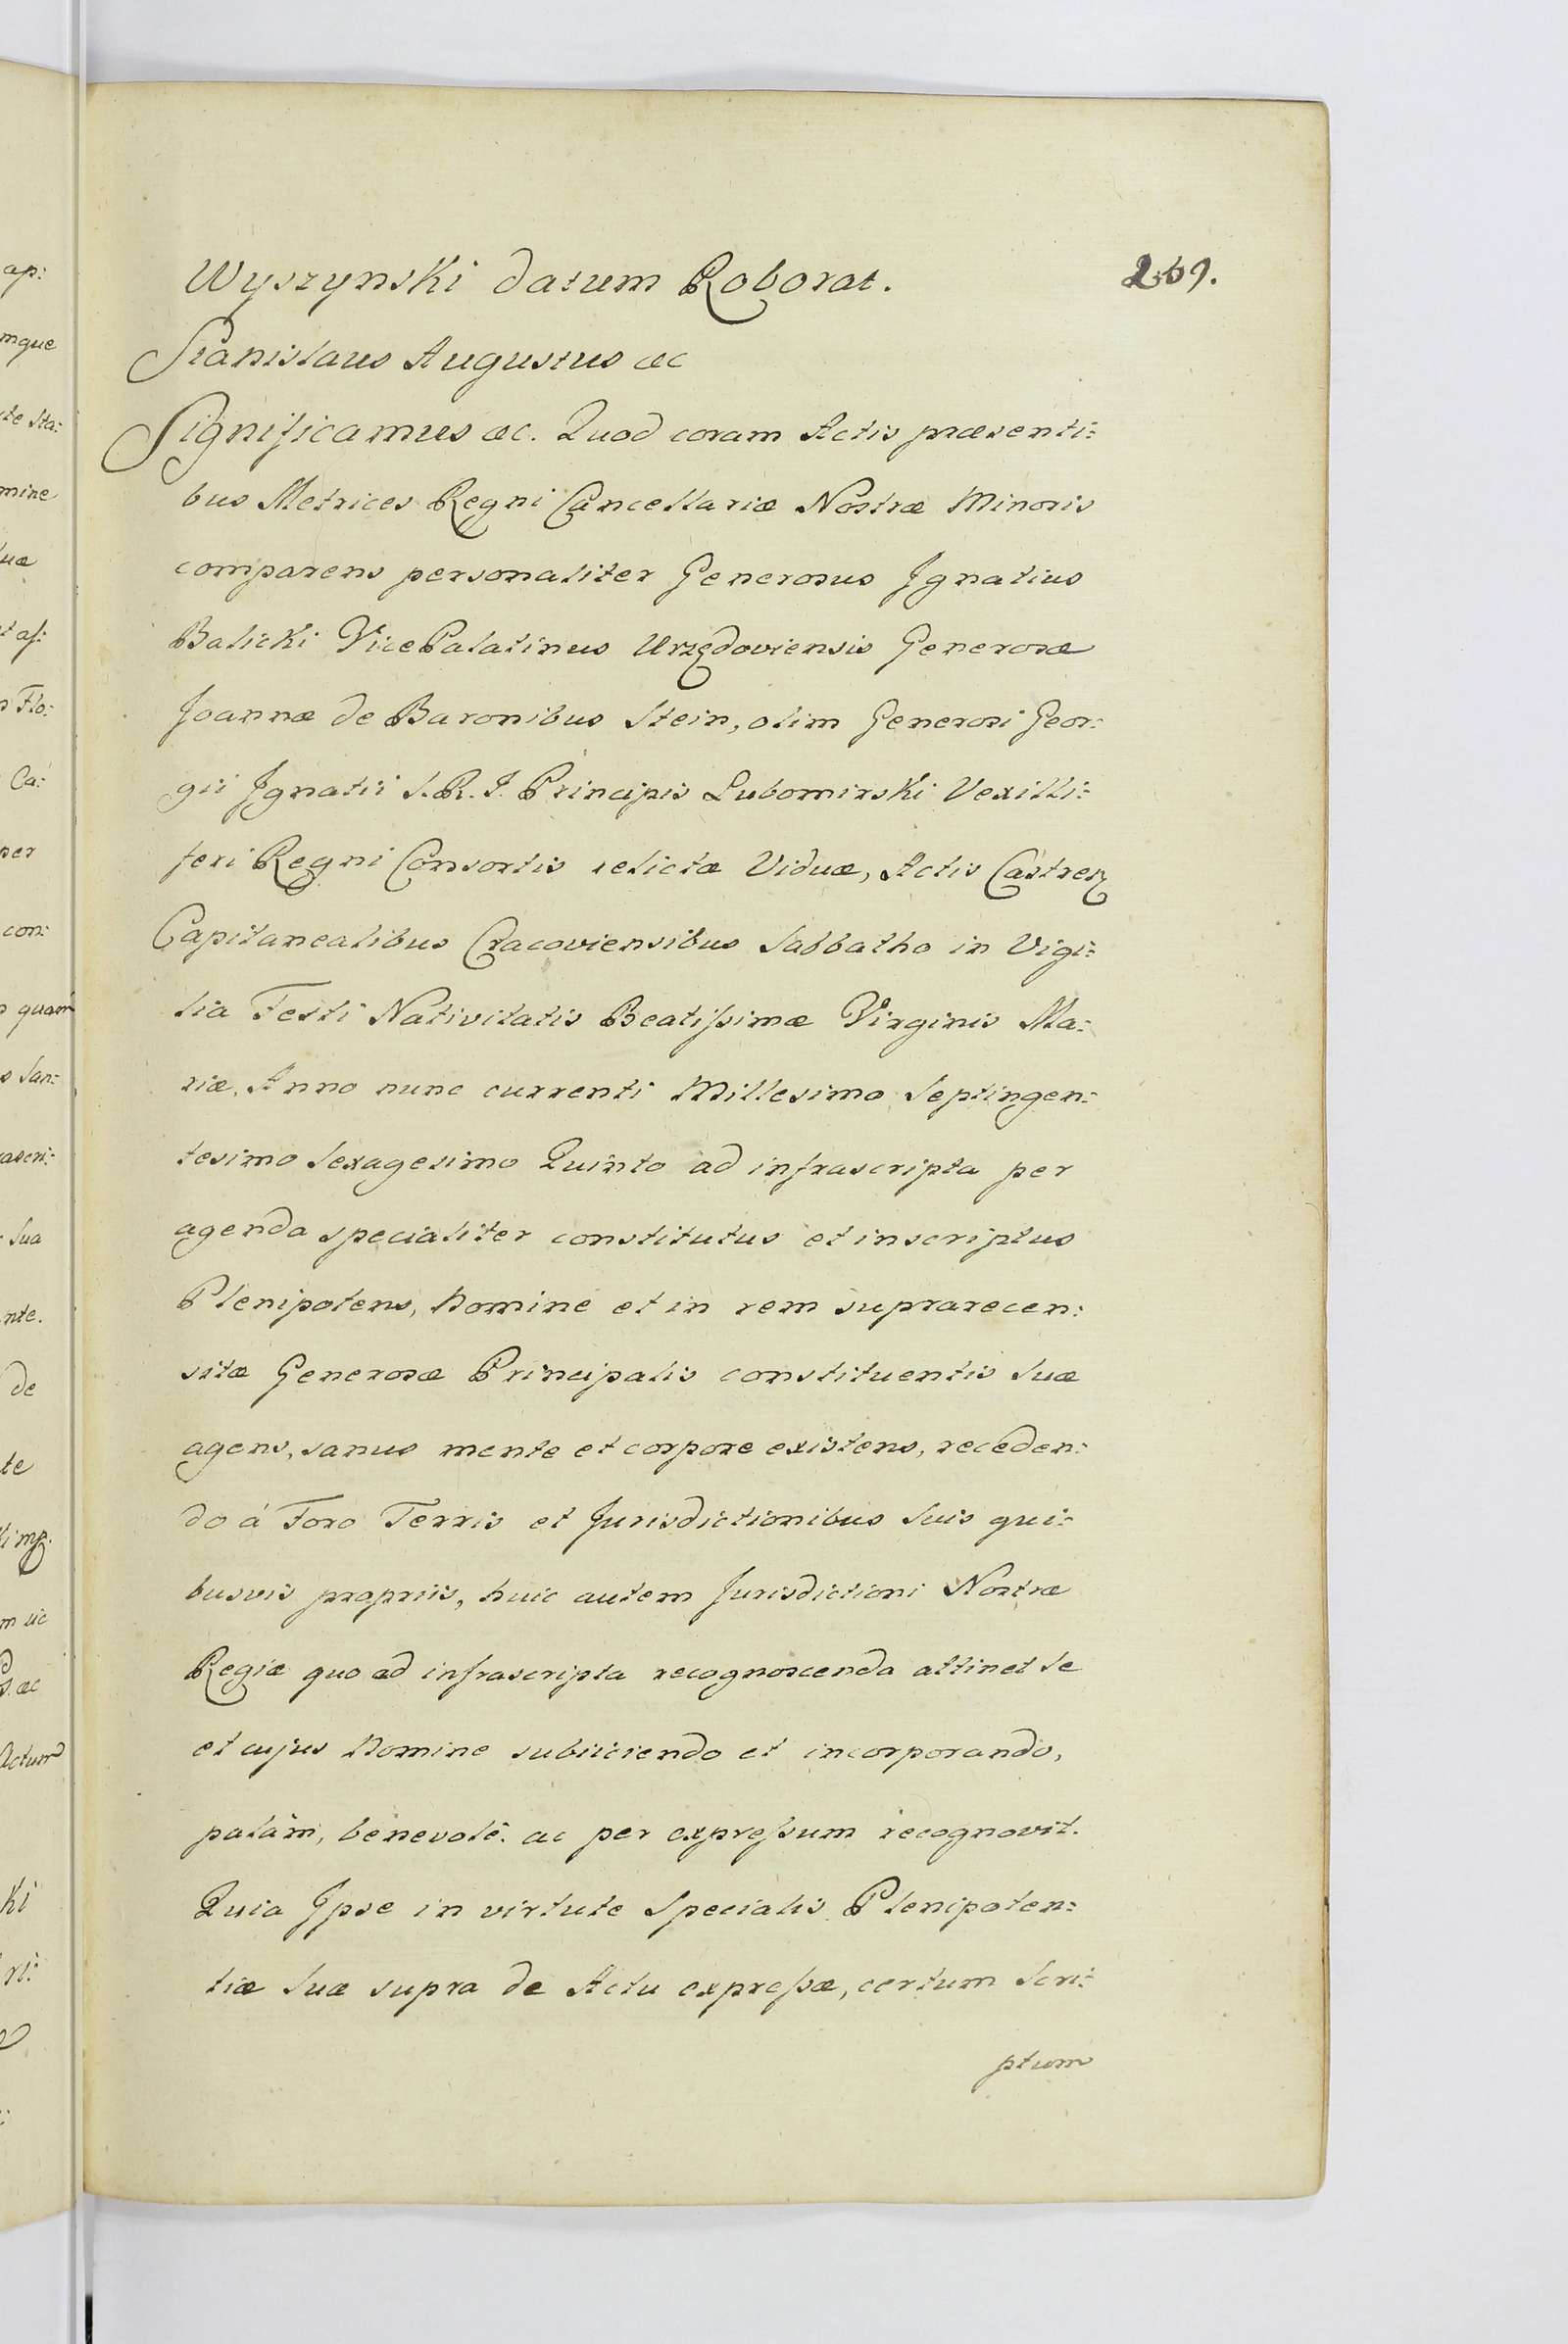 Wyszynski datum Roborat.
269.
Stanislaus Augustus æc
Significamus æc. Quod coram Actis præsenti:
bus Metrices Regni Cancellariæ Nostræ Minoris
comparens personaliter Generosus Jgnatius
Balicki VicePalatinus Urzędoviensis Generosæ
Joannæ de Baronibus Stein, olim Generosi Geor:
gii Jgnatii S.R.J. Principis Lubomirski Vexilli:
feri Regni Consortis relictæ Viduæ, Actis Castren
Capitanealibus Cracoviensibus Sabbatho in Vigi:
lia Festi Nativitatis Beatißimæ Virginis Ma:
riæ. Anno nunc currenti Millesimo Septingen:
tesimo Sexagesimo Quinto ad infrascripta per
agenda specialiter constitutus et inscriptus
Plenipotens, Nomine et in rem suprarecen:
sitæ Generosæ Principalis constituentis Suæ
agens, sanus mente et corpore existens, receden:
do á Foro Terris et Jurisdictionibus Suis qui:
busvis propriis, huic autem Jurisdictioni Nostræ
Regiæ quo ad infrascripta recognoscenda attinet Se
et cujus Nomine subiiciendo et incorporando,
palám, benevolé. ac per expreßum recognovit.
Quia Jpse in virtute Specialis Plenipoten:
tiæ Suæ supra de Actu expreßæ, certum Scri:
ptum
ap:
mque
te Sta:
mine
uæ
Flo:
Ca:
per
con:
quam
San:
Sua
nte.
de
te
æc
Actum
ki
ri: